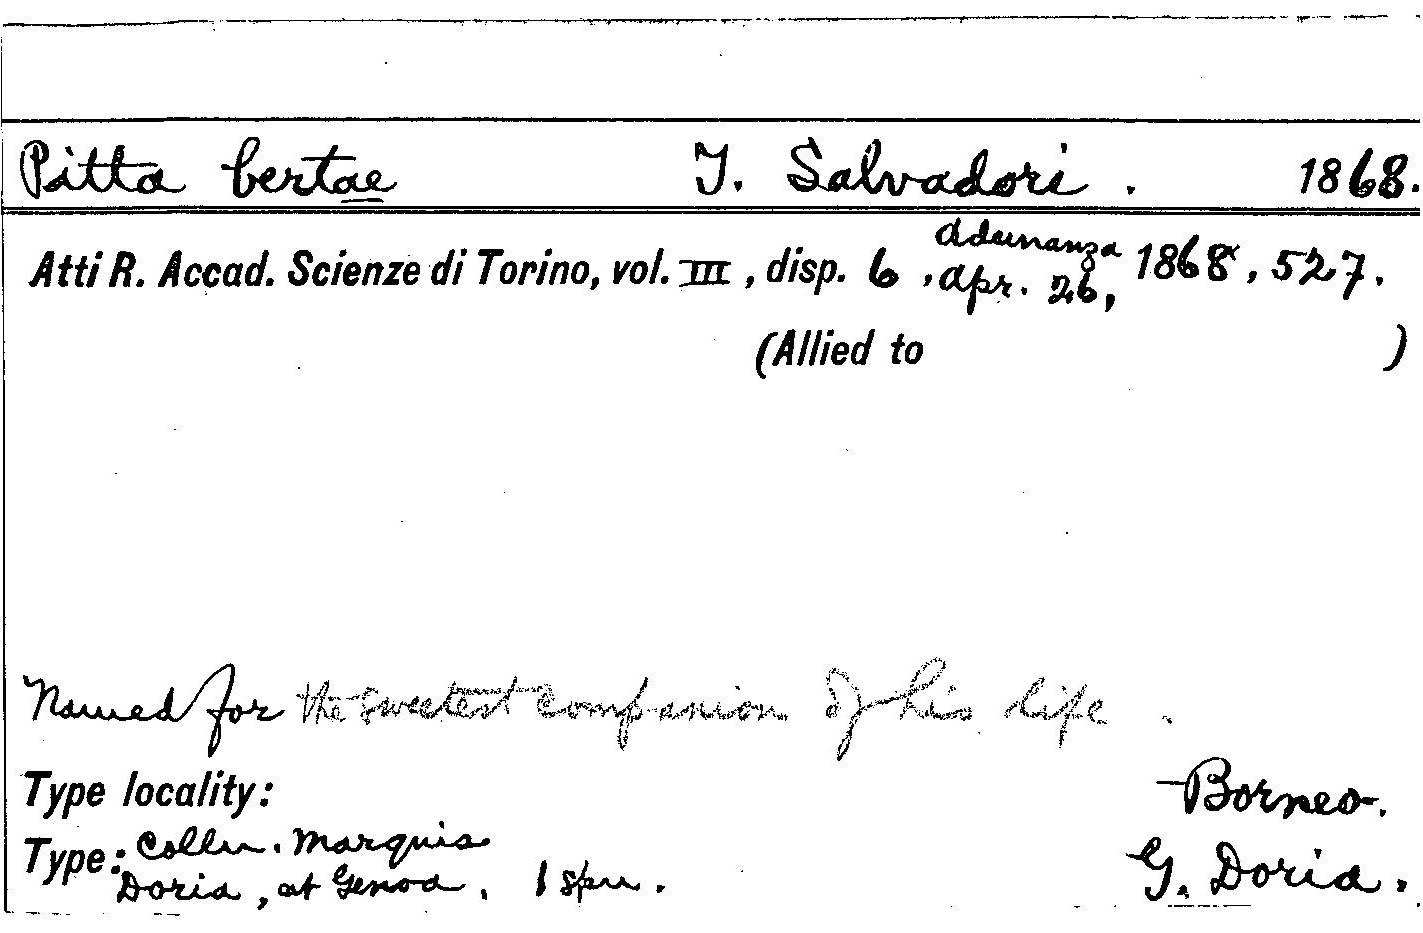 Pitta bertae T. Salvadori. 1868.
Atti R. Accad. Scienze di Torino, vol. III, disp. 6, adunanza apr. 26, 1868, 527.
(Allied to )
Named for the sweetest companion of his life.
Type locality: Borneo.
Type: Colln. Marquis G. Doria.
Doria, at Genoa. 1 spn.